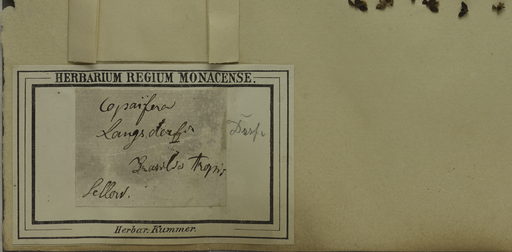 HERBARIUM REGIUM MONACENSE.
Copaifera
Langsdorfii
Desf
Brasilia tropic
Sellow.
Herbar. Kummer.